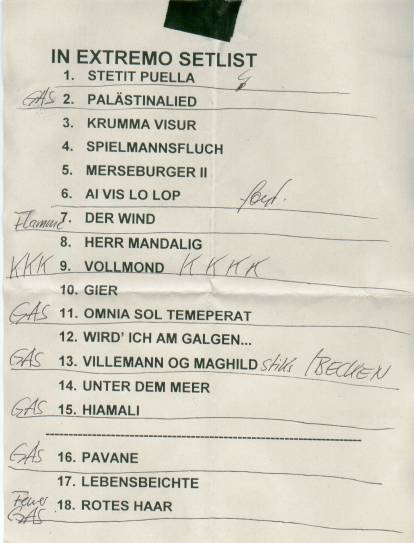 IN EXTREMO SETLIST
1. STETIT PUELLA
GAS 2. PALÄSTINALIED
3. KRUMMA VISUR
4. SPIELMANNSFLUCH
5. MERSEBURGER II
6. AI VIS LO LOP
Flamme 7. DER WIND
8. HERR MANDALIG
KKK 9. VOLLMOND KKKK
10. GIER
GAS 11. OMNIA SOL TEMEPERAT
12. WIRD' ICH AM GALGEN...
GAS 13. VILLEMANN OG MAGHILD stiks /BECKEN
14. UNTER DEM MEER
GAS 15. HIAMALI
GAS 16. PAVANE
17. LEBENSBEICHTE
Feuer 18. ROTES HAAR
GAS